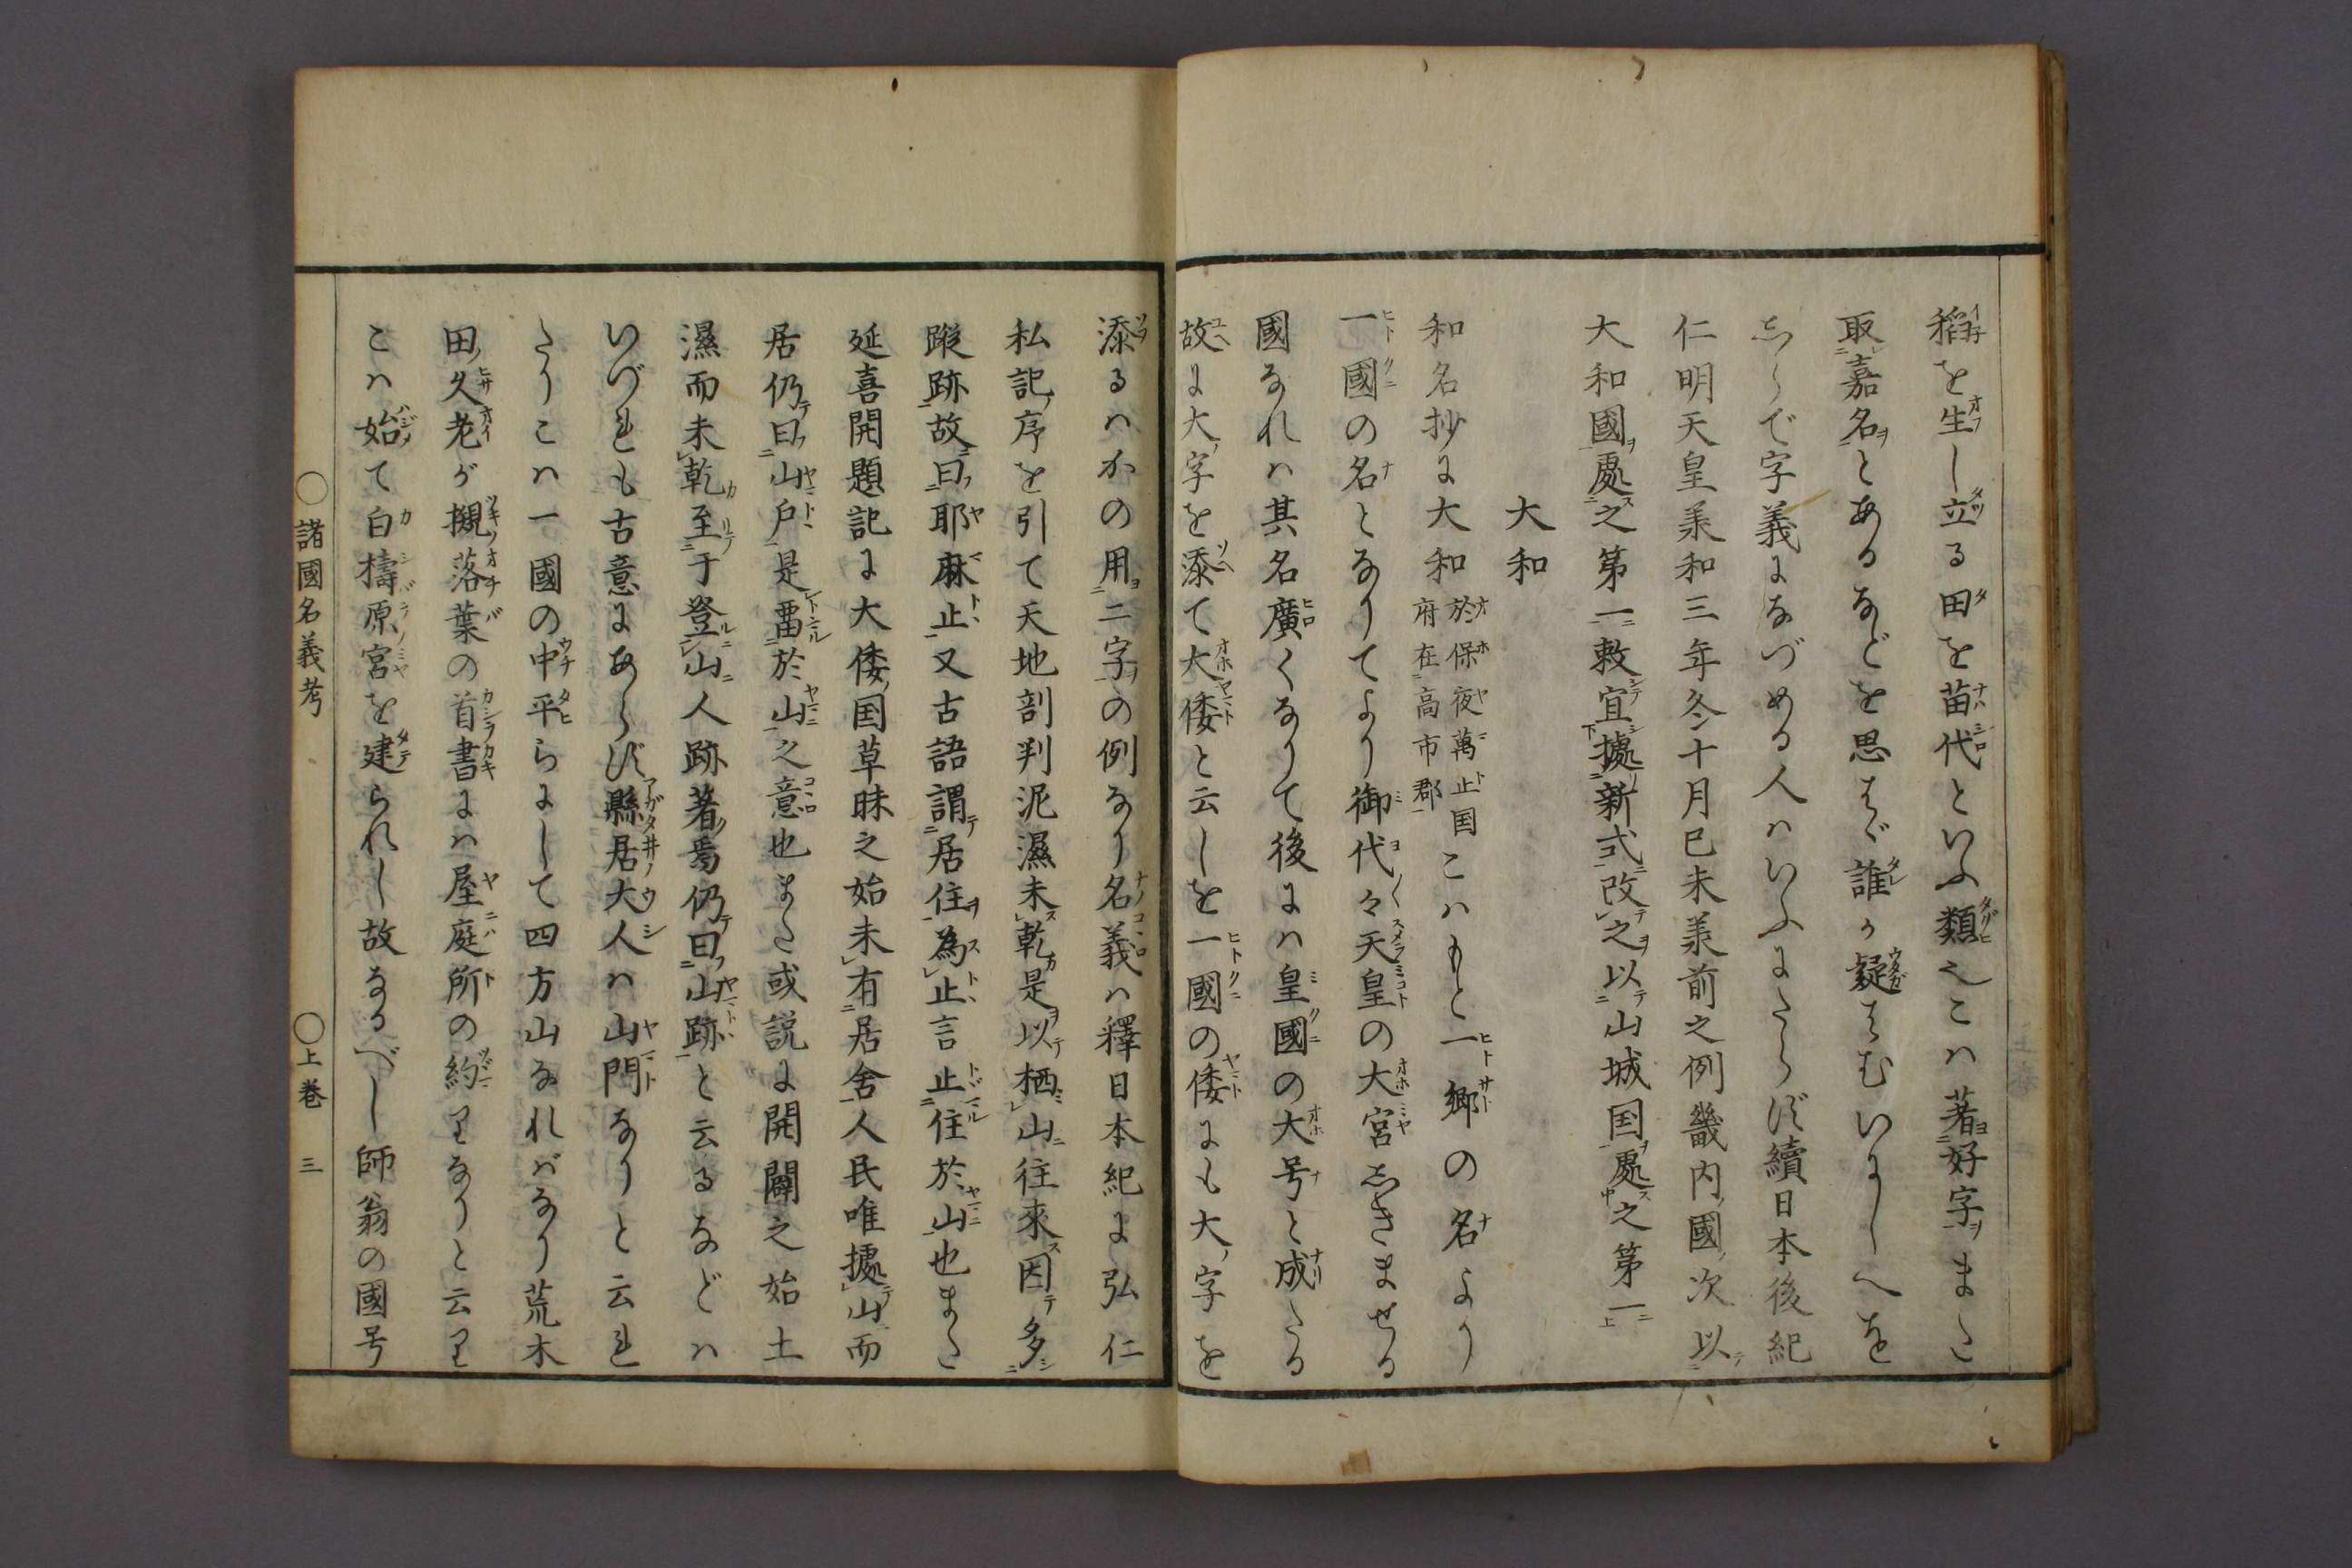 稻を生し立る田を苗代といふ類也こハ著好字また
取嘉名とあるなどを思はゞ誰か疑はむいにしへを
しらで字義になづめる人ハいふにたらず續日本後紀
仁明天皇承和三年冬十月已未承前之例畿内國次以
大和國處之第一敕宜據新式改之以山城国處之第一
大和
和名抄に大和於保夜萬止国府在高市郡こハもと一郷の名より
一國の名となりてより御代々々天皇の大宮しきませる
國なれハ其名廣くなりて後にハ皇國の大号と成たる
故に大字を添て大倭と云しを一國の倭にも大字を
添るハかの用二字の例なり名義ハ釋日本紀に弘仁
私記序を引て天地剖判泥濕未乾是以栖山往來因多
蹤跡故曰耶麻止又古語謂居住為止言止住於山也また
延喜開題記に大倭国草昧之始未有居舍人民唯據山而
居仍曰山戸是畱於山之意也また或説に開闢之始土
濕而未乾至于登山人跡著焉仍曰山跡と云るなどハ
いづれも古意にあらず縣居大人ハ山門なりと云れ
たりこハ一國の中平らにして四方山なればなり荒木
田久老が槻落葉の首書にハ屋庭所の約りなりと云り
こハ始て白檮原宮を建られし故なるべし師翁の國号
○諸國名義考　○上巻　三